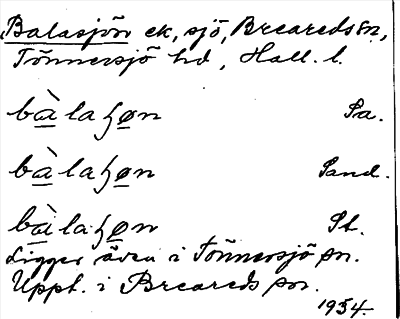 Balasjön ek, sjö, Breareds sn,
Tönnersjö hd, Hall. l.
bàlaɧøn Sa.
bàlaɧøn Sand.
bàlaɧøn St.
Ligger även i Tönnersjö sn.
Uppt. i Breareds sn.
1934.